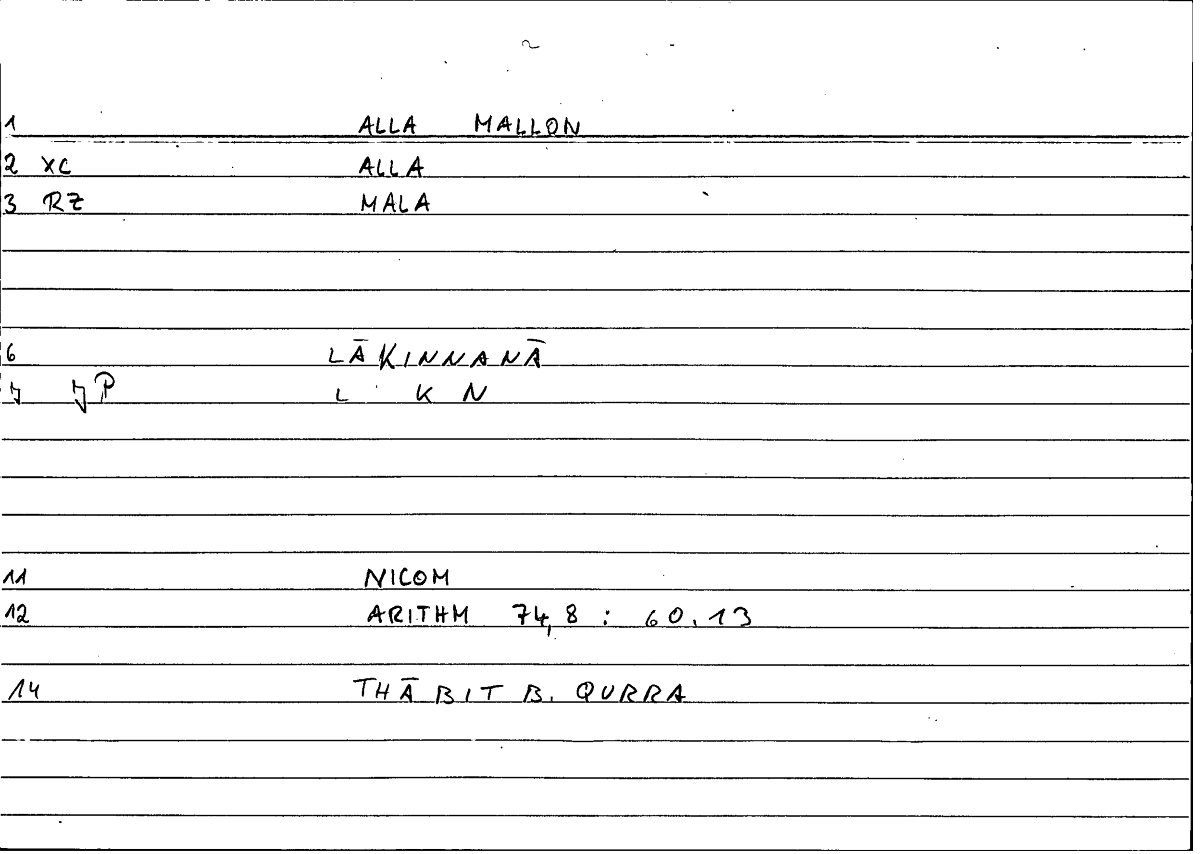 1 ALLA MALLON
2 XC ALLA
3 RZ MALA
6 LĀKINNANĀ
L K N
11 NICOM
12 ARITHM 74,8 : 60.13
14 THĀBIT B. QURRA